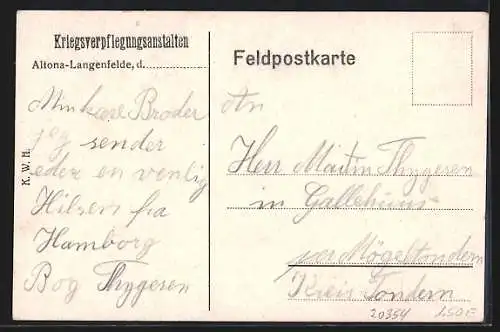 Kriegsverpflegungsanstalten
Altona-Langenfelde, d.
Min kære Broder
jeg sender
eder en venlig
Hilsen fra
Hamborg
Boy Thygesen
K. W. H.
Feldpostkarte
An
Herr Martin Thygesen
in Gallehuus
per Mögeltondern
Kreis Tondern
20354 1.50E